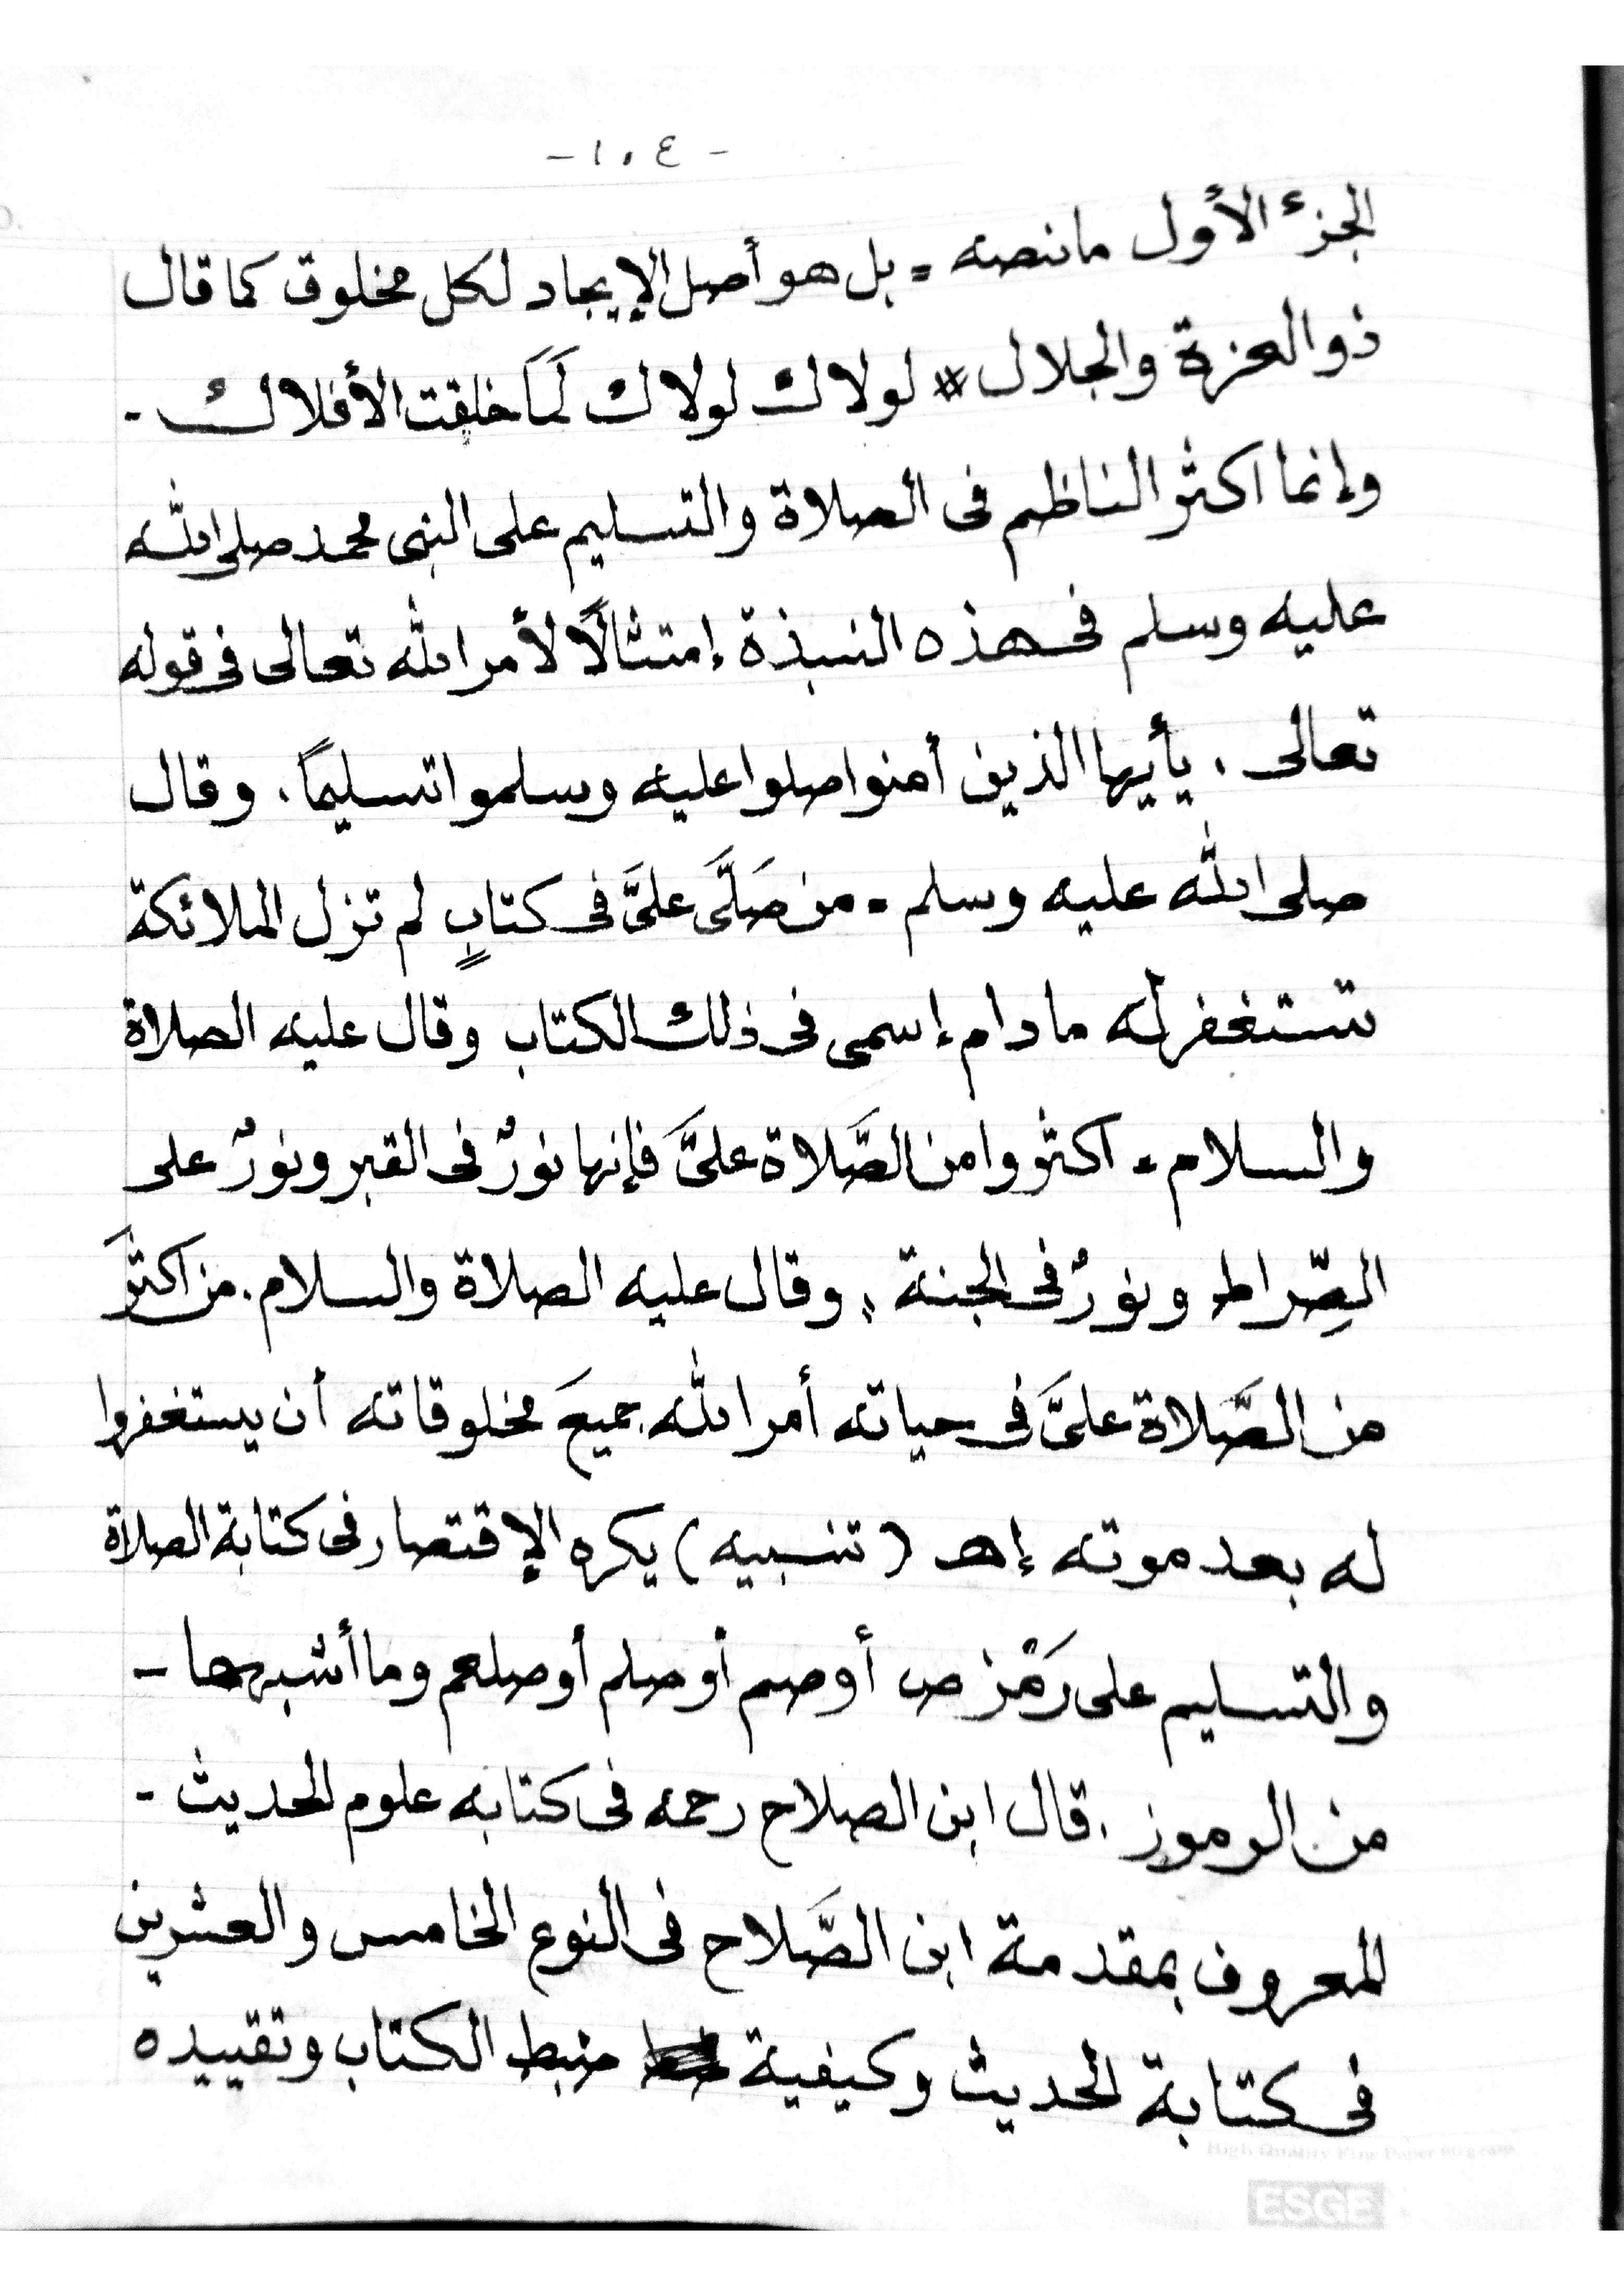 - ١٠٤ -
الجزء الأول مانصه = بل هو أصل الإيجاد لكل مخلوق كما قال
ذو العزة والجلال # لولاك لولاك لَمَا خلقت الأفلاك -
وإنما اكثر الناظم فى الصلاة والتسليم على النبى محمد صلى الله
عليه وسلم فى هذه النبذة إمتثالًا لأمر الله تعالى فى قوله
تعالى . يأيها الذين أمنوا صلوا عليه وسلموا تسليمًا . وقال
صلى الله عليه وسلم = من صَلَّى علىَّ فى كتابٍ لم تزل الملائكة
تستغفر له ما دام إسمى فى ذلك الكتاب وقال عليه الصلاة
والسلام = اكثروا من الصَّلاة علىَّ فإنها نورٌ فى القبر ونورٌ على
الصِّراط ونورٌ فى الجنة ، وقال عليه الصلاة والسلام . من اكثرَ
من الصَّلاة علىَّ فى حياته أمر الله جميعَ مخلوقاته أن يستغفروا
له بعد موته إهـ (تنبيه) يكره الإقتصار فى كتابة الصلاة
والتسليم على رَمْز ص أو صم أو صلم أو صلعم وما أشبهها -
من الرموز . قال ابن الصلاح رحمه فى كتابه علوم الحديث -
المعروف بمقدمة ابن الصَّلاح فى النوع الخامس والعشرين
فى كتابة الحديث وكيفية ضبط الكتاب وتقييده
High Quality Fine Paper
ESGE